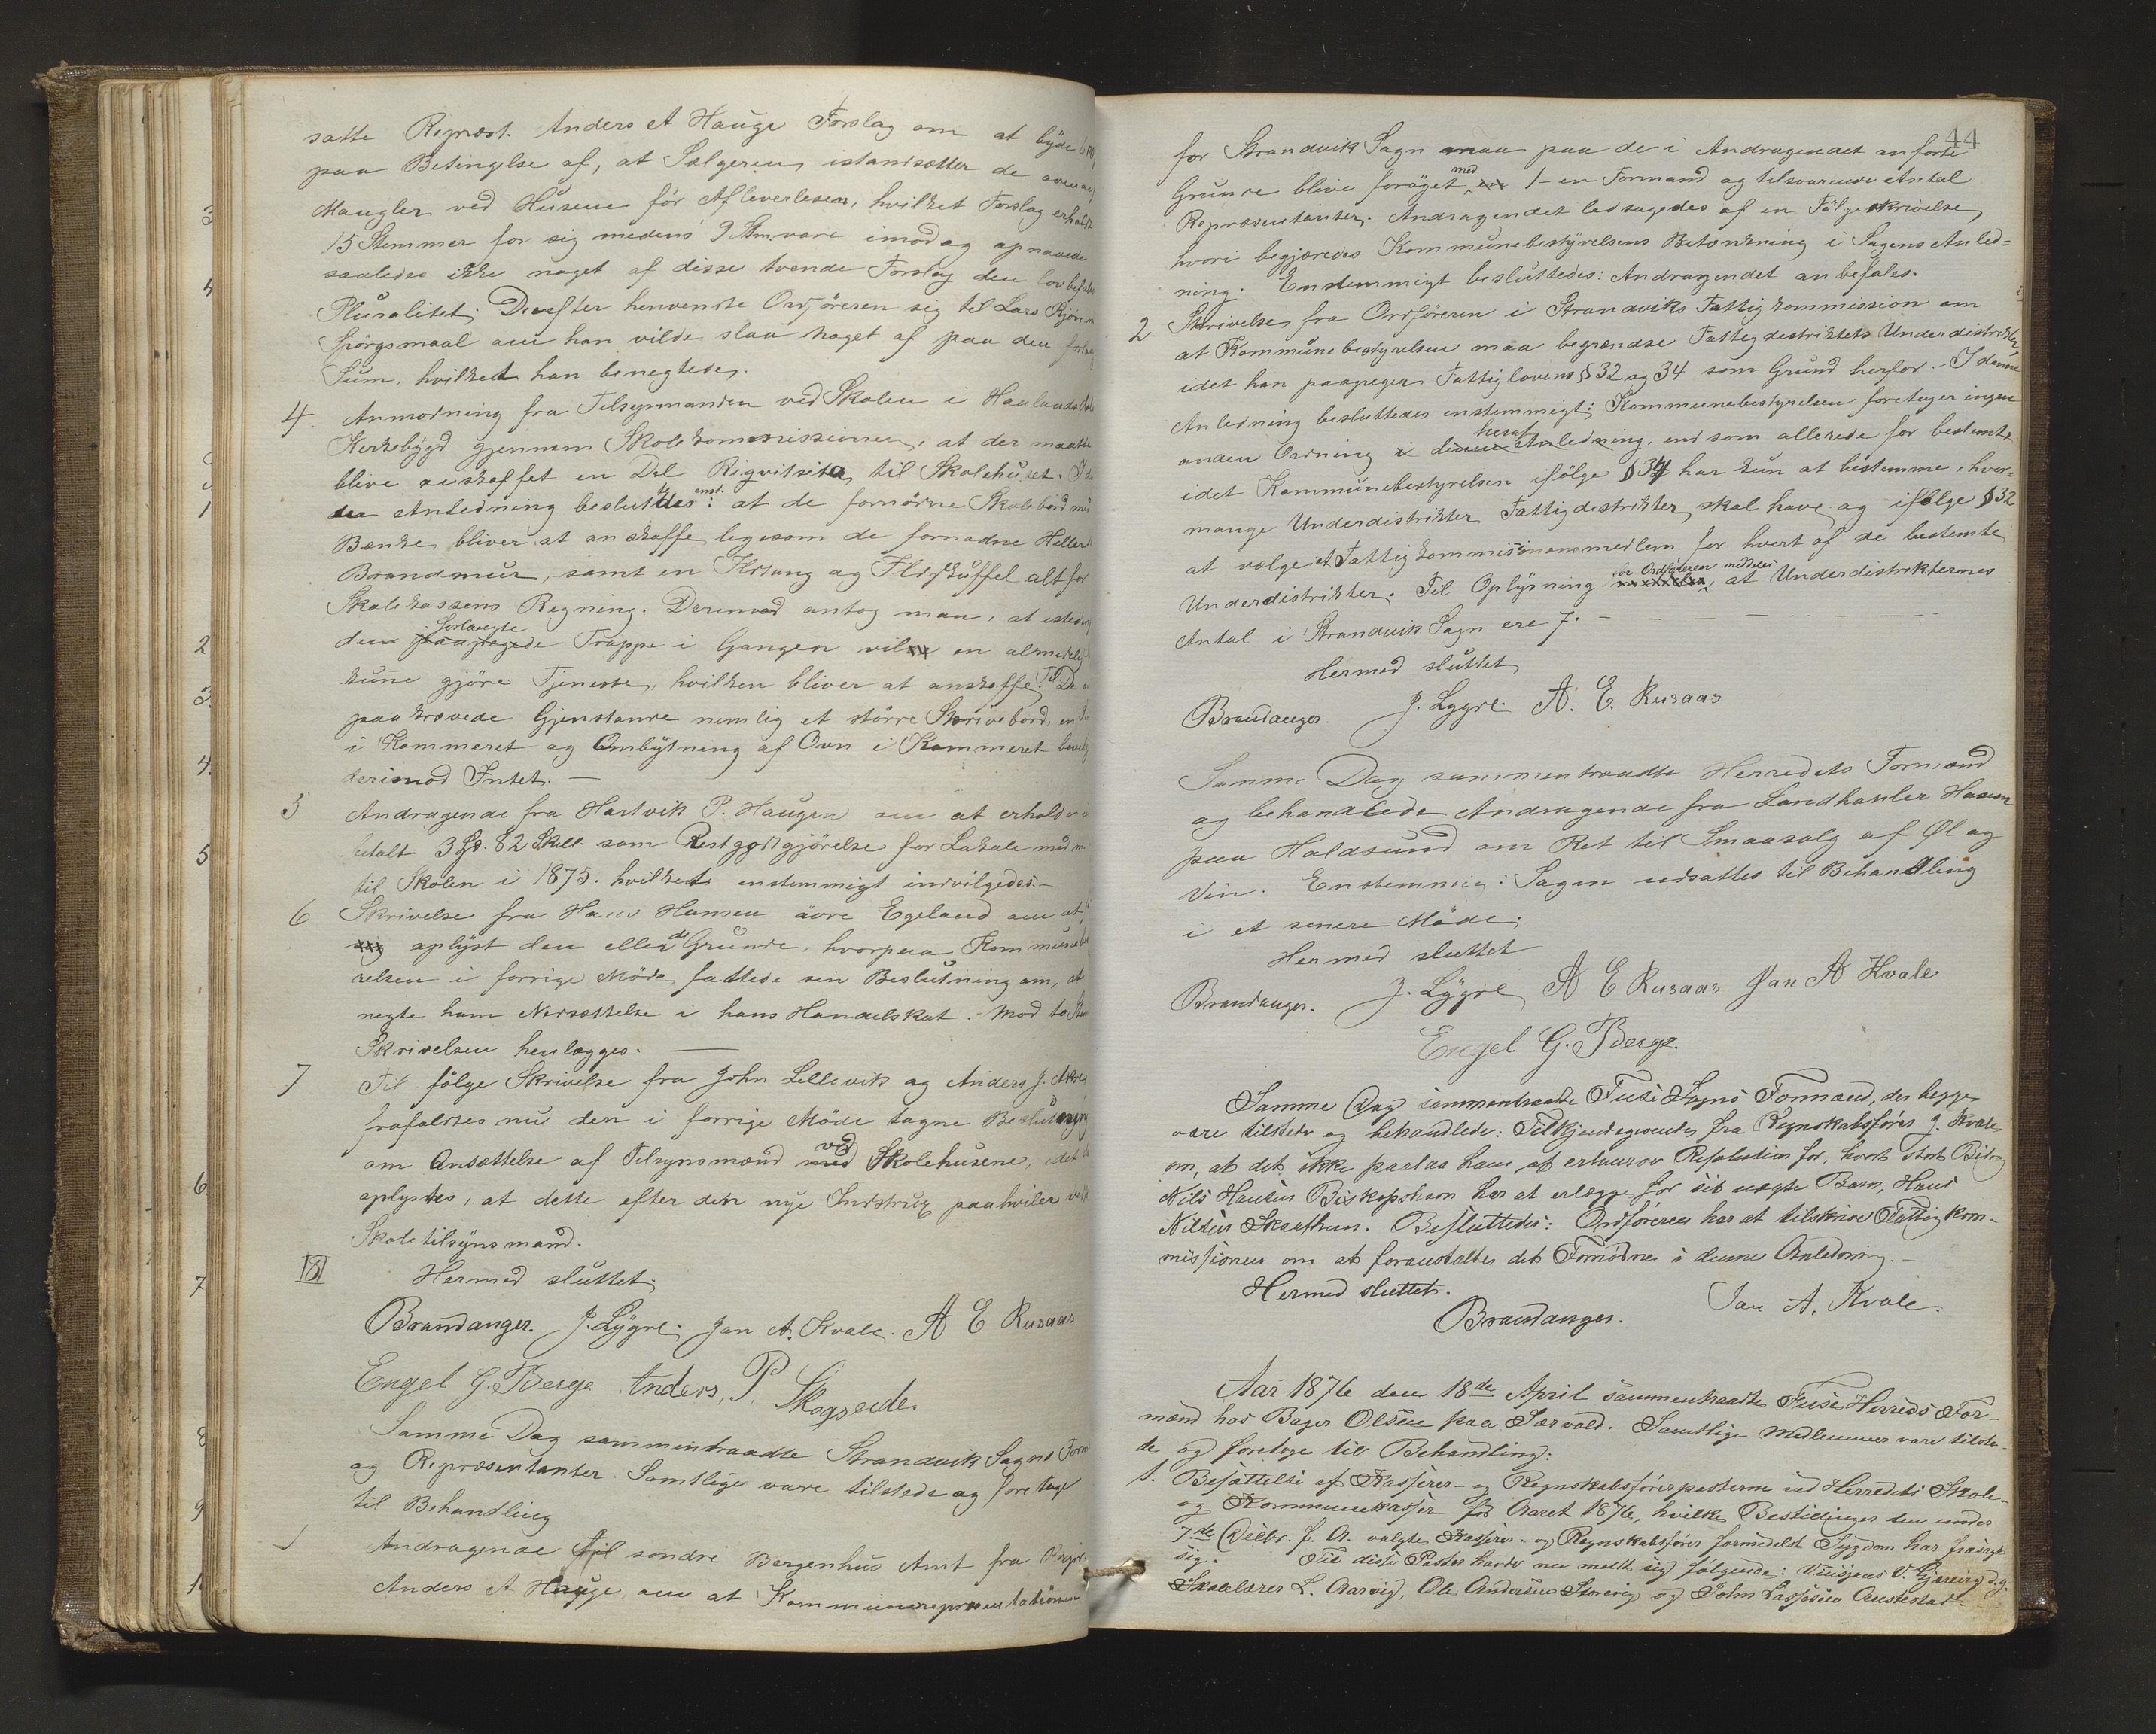 satte Repræst. Anders A Hauge Forslag om at byde
paa Betingelse af, at Sælgeren istandsætter de
Mangler ved Husene för Afleverlesen, hvilket Forslag erholdt
15 Stemmer for sig medens 9 Stm. vare imod og opnaaede
saaledes ikke noget af disse tvende Forslag den lovbefalede
Pluralitet. Derefter henvendte Ordföreren sig til Lars
Spörgsmaal om han vilde slaa noget af paa den
Sum, hvilket han benegtede.
4. Anmodning fra Tilsynmanden ved Skolen i Haalands
Kirkebygd gjennem Skolekommissionen, at der maatte
blive anskaffet en Del Rigvitsita til Skolehuset. I
Anledning besluttedes enst.: at de fornödne Skolebord med
Bænke bliver at anskaffe, legesom de fornødne Heller
Brandmur, samt en Ildtang og Ildskuffel alt for
Skolekassens Regning. Derimod antog man, at istedenfor
den forlangte Trappe i Gangen vil en almindelig
kunne gjöre Tjeneste, hvilken bliver at anskaffe. Til De
paakrævede Gjenstande nemlig et större Skrivebord, en
i Kammeret og Ombytning af Ovn i Kammeret
derimod Intet. —
5 Andragende fra Hartvik P. Haugen om at erholde
betalt 3 Sp. 82 Skill. som Restgodtgjörelse for Lokale med
til Skolen i 1875. hvilket enstemmigt indvilgedes.—
6 Skrivelse fra Hans Hansen övre Egeland om at
oplyst den eller de Grunde, hvorpaa Kommunebesty
relsen i forrige Möde fattede sin Beslutning om, at
negte ham Nedsættelse i hans Handelskat. Mod to
Skrivelsen henlægges. —
7 Til fölge Skrivelse fra John Lillevik og Anders J.
frafaldtes nu den i forrige Möde tagne Beslutning
om Ansættelse af Tilsynsmænd ved Skolehusene, idet
oplystes, at dette efter den nye Instrux paahviler
Skoletilsynsmænd.
8 Hermed sluttet.
Brandanger. J. Lygre. Jan A. Kvale. A E Rusaas
Engel G. Berge Anders, P. Skogseide.
Samme Dag sammentraadte Strandvik Sogns
og Repræsentanter. Samtlige vare tilstede og foretoge
til Behandling
1 Andragende til söndre Bergenhus Amt fra
Anders A Hauge om at Kommunerepræsentationen
44
for Strandvik Sogn maa paa de i Andragendet anförte
Grunde blive foröget med 1 – en Formand og tilsvarende Antal
Repræsentanter. Andragendet ledsagedes af en Fölgeskrivelse,
hvori begjæredes Kommunebestyrelsens Betænkning i Sagens Anled=
ning. Enstemmigt besluttedes: Andragendet anbefales.
2. Skrivelse fra Ordföreren i Strandviks Fattigkommission om
at Kommunebestyrelsen maa begrændse Fattigdestriktets Underdistrikter,
idet han paapeger Fattiglovens § 32 og 34 som Grund herfor. I denne
Anledning besluttedes enstemmigt: Kommunebestyrelsen foretager ingen
anden Ordning i denne Anledning heraf, end som allerede for bestemt,
idet Kommunebestyrelsen ifölge § 34 har kun at bestemme, hvor=
mange Underdistrikter Fattigdestrikter skal have og ifølge § 32
at vælge et Fattigkommissionsmedlem for hvert af de bestemte
Underdistrikter. Til Oplysning for Ordföreren meddeles, at Underdistrikternes
Antal i Strandvik Sogn ere 7. – – – – – – –
Hermed sluttet
Brandanger. J. Lygre. A. E. Rusaas
Samme Dag sammentraadte Herredets Formænd
og behandlede Andragende fra Landhanler Hansen
paa Holdsund om Ret til Smaasalg af Øl og
Vin. Enstemmig: Sagen udsættes til Behandling
i et senere Möde.
Hermed sluttet
Brandanger. J. Lygre A E Rusaas Jan A Kvale
Engel G. Berge.
Samme Dag sammentraadte Fuse Sogns Formænd, der begge
vare tilstede og behandlede: Tilkjendegivende fra Regnskabsförer J. Kvale
om, at det ikke paalaa ham at erhverve Resolution for, hvort stort Bidrag
Nils Hansen Biskopshavn har at erlægge for sit uægte Barn, Hans
Nilsen Skaathun. Besluttedes: Ordföreren har at tilskrive Fattigkom-
missionen om at foranstalte det Fornödne i denne Anledning.—
Hermed sluttet.
Brandanger. Jan A. Kvale.
Aar 1876 den 18de April sammentraadte Fuse Herreds For-
mænd hos Bager Olsen paa Sævold. Samtlige Medlemmer vare tilste-
de og foretoge til Behandling:
1. Besættelse af Kasserer- og Regnskabsförerposterne ved Herredets Skole-
og Kommunekasser for Aaret 1876, hvilke Bestillinger den under
7de Decbr. f. A. valgte Kasserer- og Regnskabsförer formedelst Sygdom har frasagt
sig. Til disse Poster havde nu meldt sig fölgende:
Skolelærer L. Aarvig, Ole Andersen Storevig og John Lassesen Austestad.